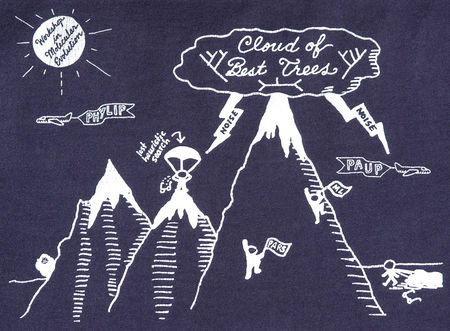 Workshop
in
Molecular
Evolution
Cloud of
Best Trees
PHYLIP
NOISE
NOISE
lost
heuristic
search
PAUP
ML
PARS